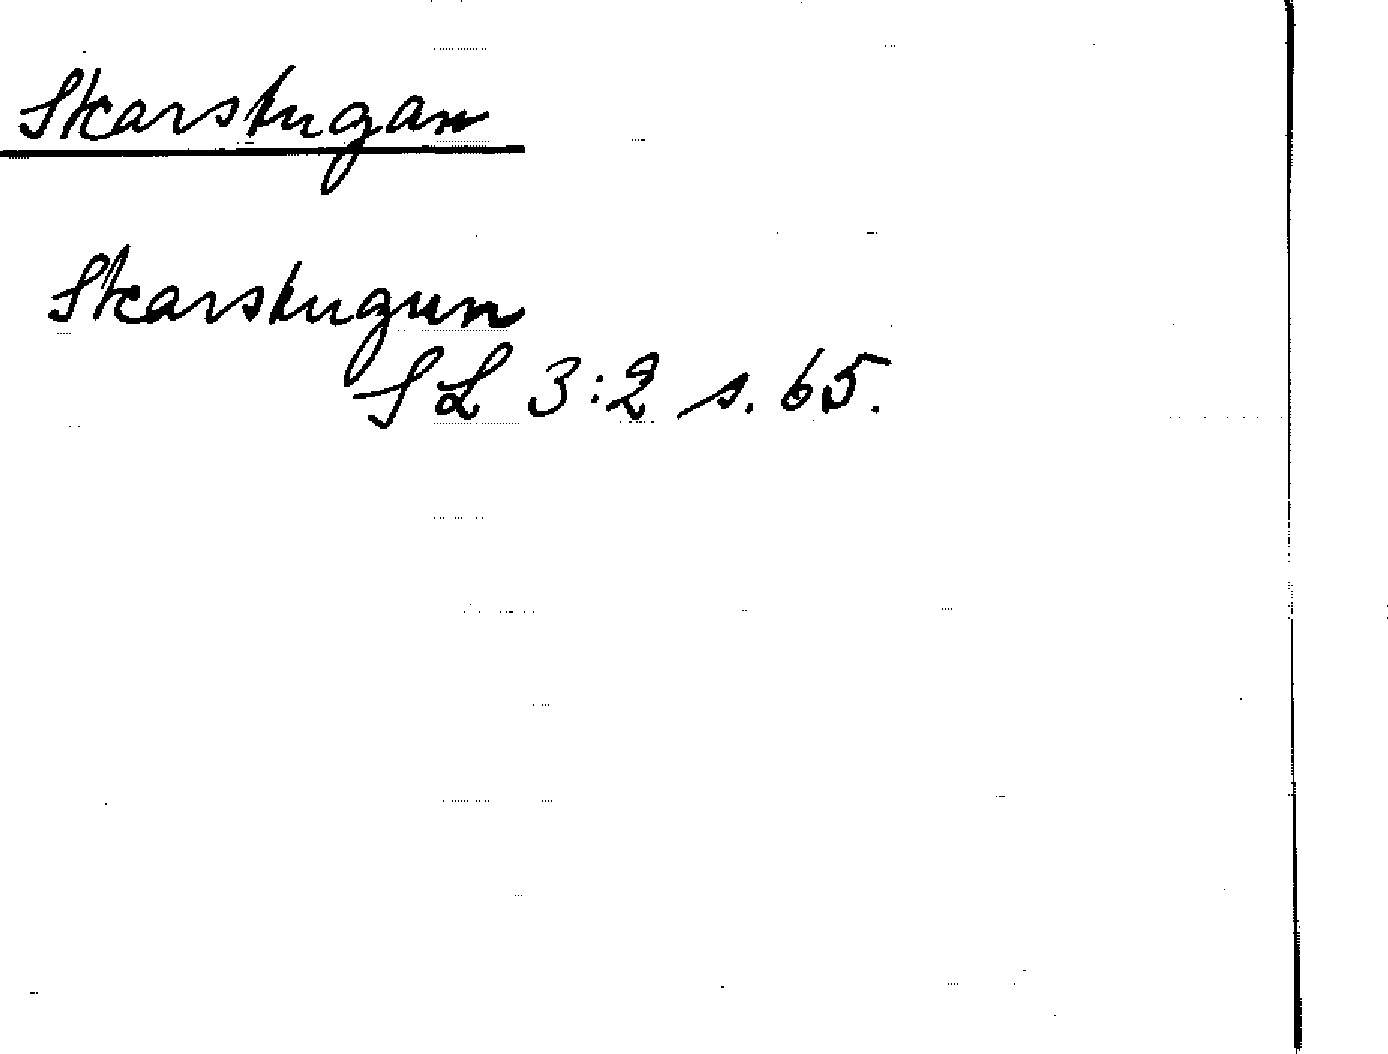 Skarstugan
Skarstugun
SL 3:2 s. 65.